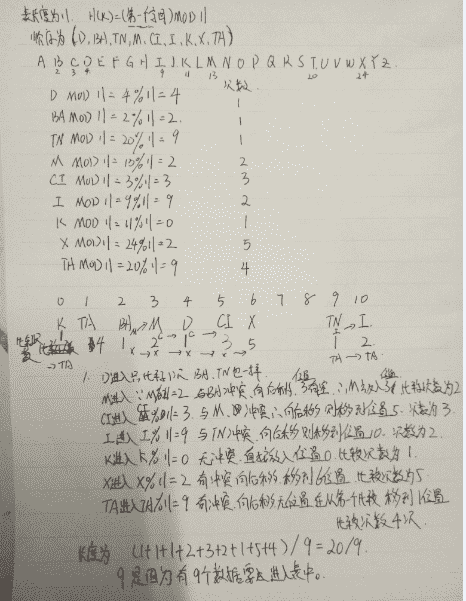 表长度为11. H(K)=(第一个字母)MOD 11
顺序为 (D, BA, TN, M, CI, I, K, X, TA)
A B C D E F G H I J K L M N O P Q R S T U V W X Y Z.
2 3 4 9 11 13 20 24
次数
D MOD 11 = 4%11 = 4 1
BA MOD 11 = 2%11 = 2. 1
TN MOD 11 = 20%11 = 9 1
M MOD 11 = 13%11 = 2 2
CI MOD 11 = 3%11 = 3 3
I MOD 11 = 9%11 = 9 2
K MOD 11 = 11%11 = 0 1
X MOD 11 = 24%11 = 2 5
TA MOD 11 = 20%11 = 9 4
0 1 2 3 4 5 6 7 8 9 10
K TA BA M D CI X TN I
比较次数 1 4 1 2 1 3 5 1 2
→TA x→x→x→x→ TA→TA
1. D进入只比较1次 BA, TN也一样.
M进入 ∵M%11=2 与BA冲突,向后移,3位置 ∴M放入3 比较次数为2
CI进入 %11=3, 与M, D冲突 ∴向后移 则移到位置5. 次数为3.
I进入 I%11=9 与TN冲突,向后移则移到位置10. 次数为2.
K进入 K%11=0 无冲突,直接放入位置0 比较次数为1.
X进入 X%11=2 有冲突,向后移 移到6位置 比较次数为5
TA进入 TA%11=9 有冲突,向后移无位置在从第个比较 移到1位置
比较次数4次.
长度为 (1+1+1+2+3+2+1+5+4)/9=20/9.
9是因为有9个数据需要进入表中.